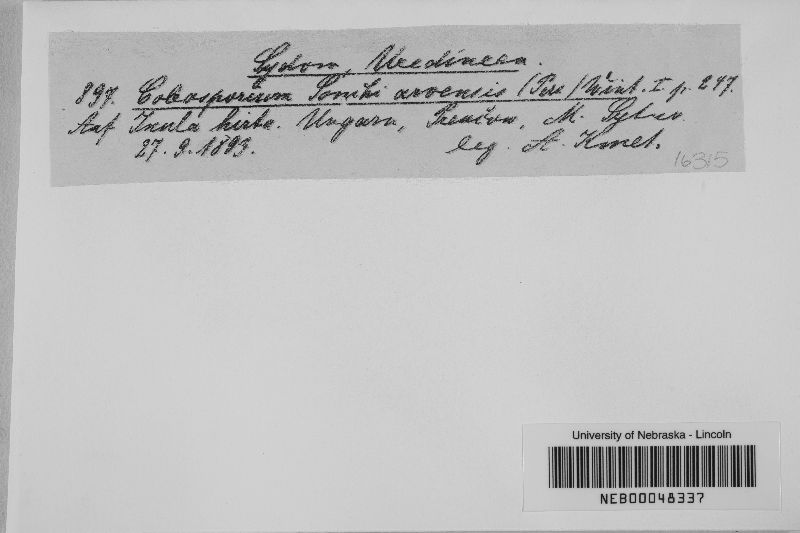 Sydow, Uredineen.
897. Coleosporium Sonchi arvensis (Pers) Wint. I p. 247.
Auf Inula hirta. Ungarn, Prenčow, M. Sytno
27. 9. 1893. leg. A. Kmet.
16315
University of Nebraska - Lincoln
NEB00048337